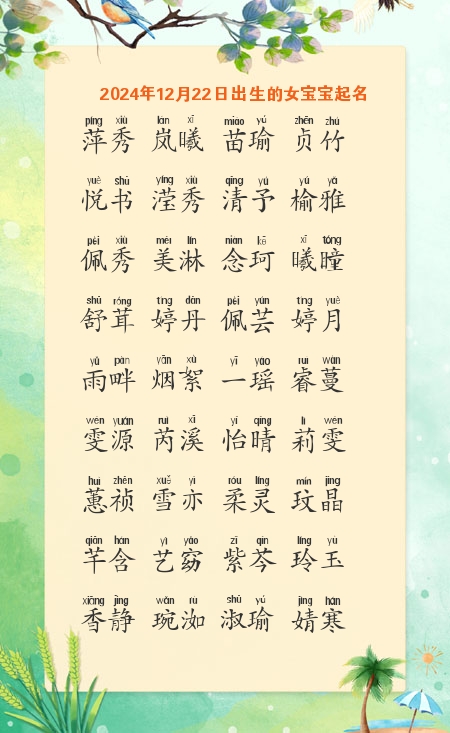 2024年12月22日出生的女宝宝起名
píng xiù lán xī miáo yú zhēn zhú
萍秀 岚曦 苗瑜 贞竹
yuè shū yíng xiù qīng yú yú yǎ
悦书 滢秀 清予 榆雅
pèi xiù měi lín niàn kē xī tóng
佩秀 美淋 念珂 曦瞳
shū róng tíng dān pèi yún tíng yuè
舒茸 婷丹 佩芸 婷月
yǔ pàn yān xù yī yáo ruì wàn
雨畔 烟絮 一瑶 睿蔓
wén yuán ruì xī yí qíng lì wén
雯源 芮溪 怡晴 莉雯
huì zhēn xuě yì róu líng mín jīng
蕙祯 雪亦 柔灵 玟晶
qiān hán yì yǎo zǐ qín líng yù
芊含 艺窈 紫芩 玲玉
xiāng jìng wǎn rù shū yú jìng hán
香静 琬洳 淑瑜 婧寒